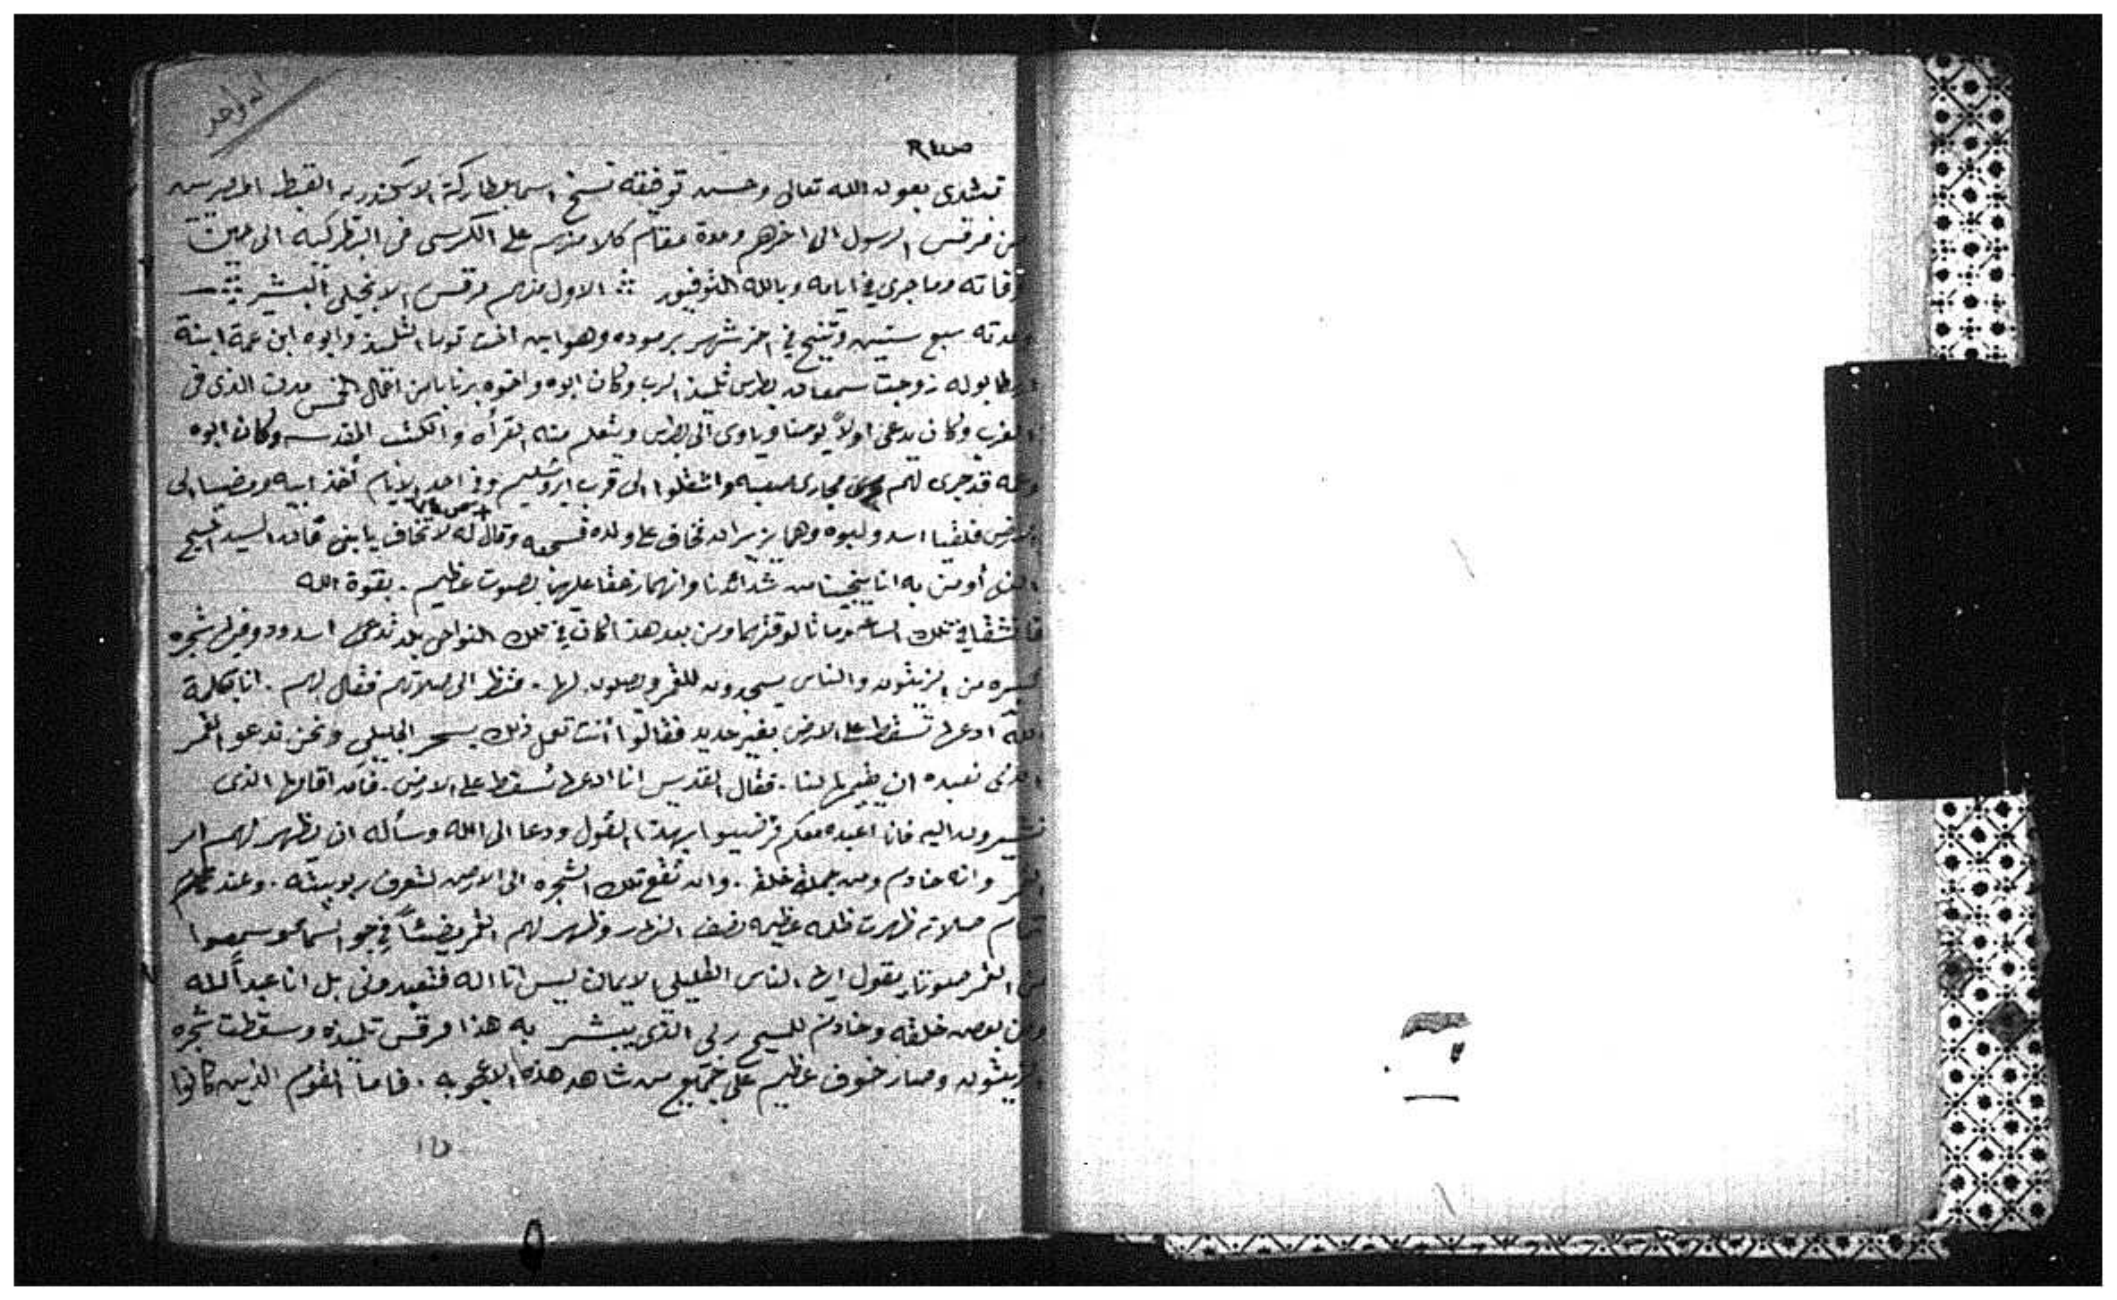 اله واحد
نبتدى بعون الله تعالى وحسن توفيقه نسخ اسما بطاركة الاسكندريه القبط
من مرقس الرسول الى اخرهم ومدة مقام كلا منهم على الكرسى فى البطركيه الى حين
وفاته وما جرى فى ايامه وبالله التوفيق الاول منهم مرقس الانجيلى البشير
ومدته سبع سنين وتنيح فى اخر شهر برموده وهو ابن اخت توما التلميذ وابوه ابن عمة ابنة
زوجت سمعان بطرس تلميذ الرب وكان ابوه واخوه برنابا من اعمال الخمس مدن الذى فى
الغرب وكان يدعى اولاً يوحنا وياوى الى بطرس ويتعلم منه القرأه والكتب المقدسه وكان ابوه
وعمه قد جرى لهم مجارى صعبه وانتقلوا الى قرب ايروشليم وفى احد الايام أخذ ابيه ومضيا الى
فلقيا اسد ولبوه وهما يزيران فخاف على ولده فسمعه وقال له لا تخاف يابنى فان السيد المسيح
الذى أومن به انا ينجينا من شدائدنا وانهما زعقا عليهما بصوت عظيم . بقوة الله
فانشقا فى تلك الساعه وماتا لوقتهما ومن بعد هذا كان فى تلك النواحى بلد تدعى اسدود وفيها شجره
كبيره من الزيتون والناس يسجدون للقمر ويصلون لها . فنظر الى صلاتهم فقال لهم . انا بكلمة
الله ادعها تسقط على الارض بغير حديد فقالوا أنت تعمل ذلك بسحر الجليلى ونحن ندعو القمر
الذى نعبده ان يقيمها لنا . فقال القديس انا ادعها تسقط على الارض . فان اقامها الذى
تشيرون اليه فانا اعبده معكم فرضيوا بهذا القول ودعا الى الله وسأله ان يظهر لهم امر
القمر وانه خادم ومن جملة خلقه . وان تقع تلك الشجره الى الارض لتعرف ربوبيته . وعند
تمام صلاته ظهرت ظلمه عظيمه نصف النهار وظهر لهم القمر يضئاً فى جو السمأ وسمعوا
من القمر صوتا يقول ايها الناس القليلى الايمان ليس انا اله فتعبدونى بل انا عبداً لله
ومن بعض خلقه وخادم للمسيح ربى الذى يبشر به هذا مرقس تلميذه وسقطت شجره
الزيتون وصار خوف عظيم على جميع من شاهد هذه الاعجوبه . فاما القوم الذين كانوا